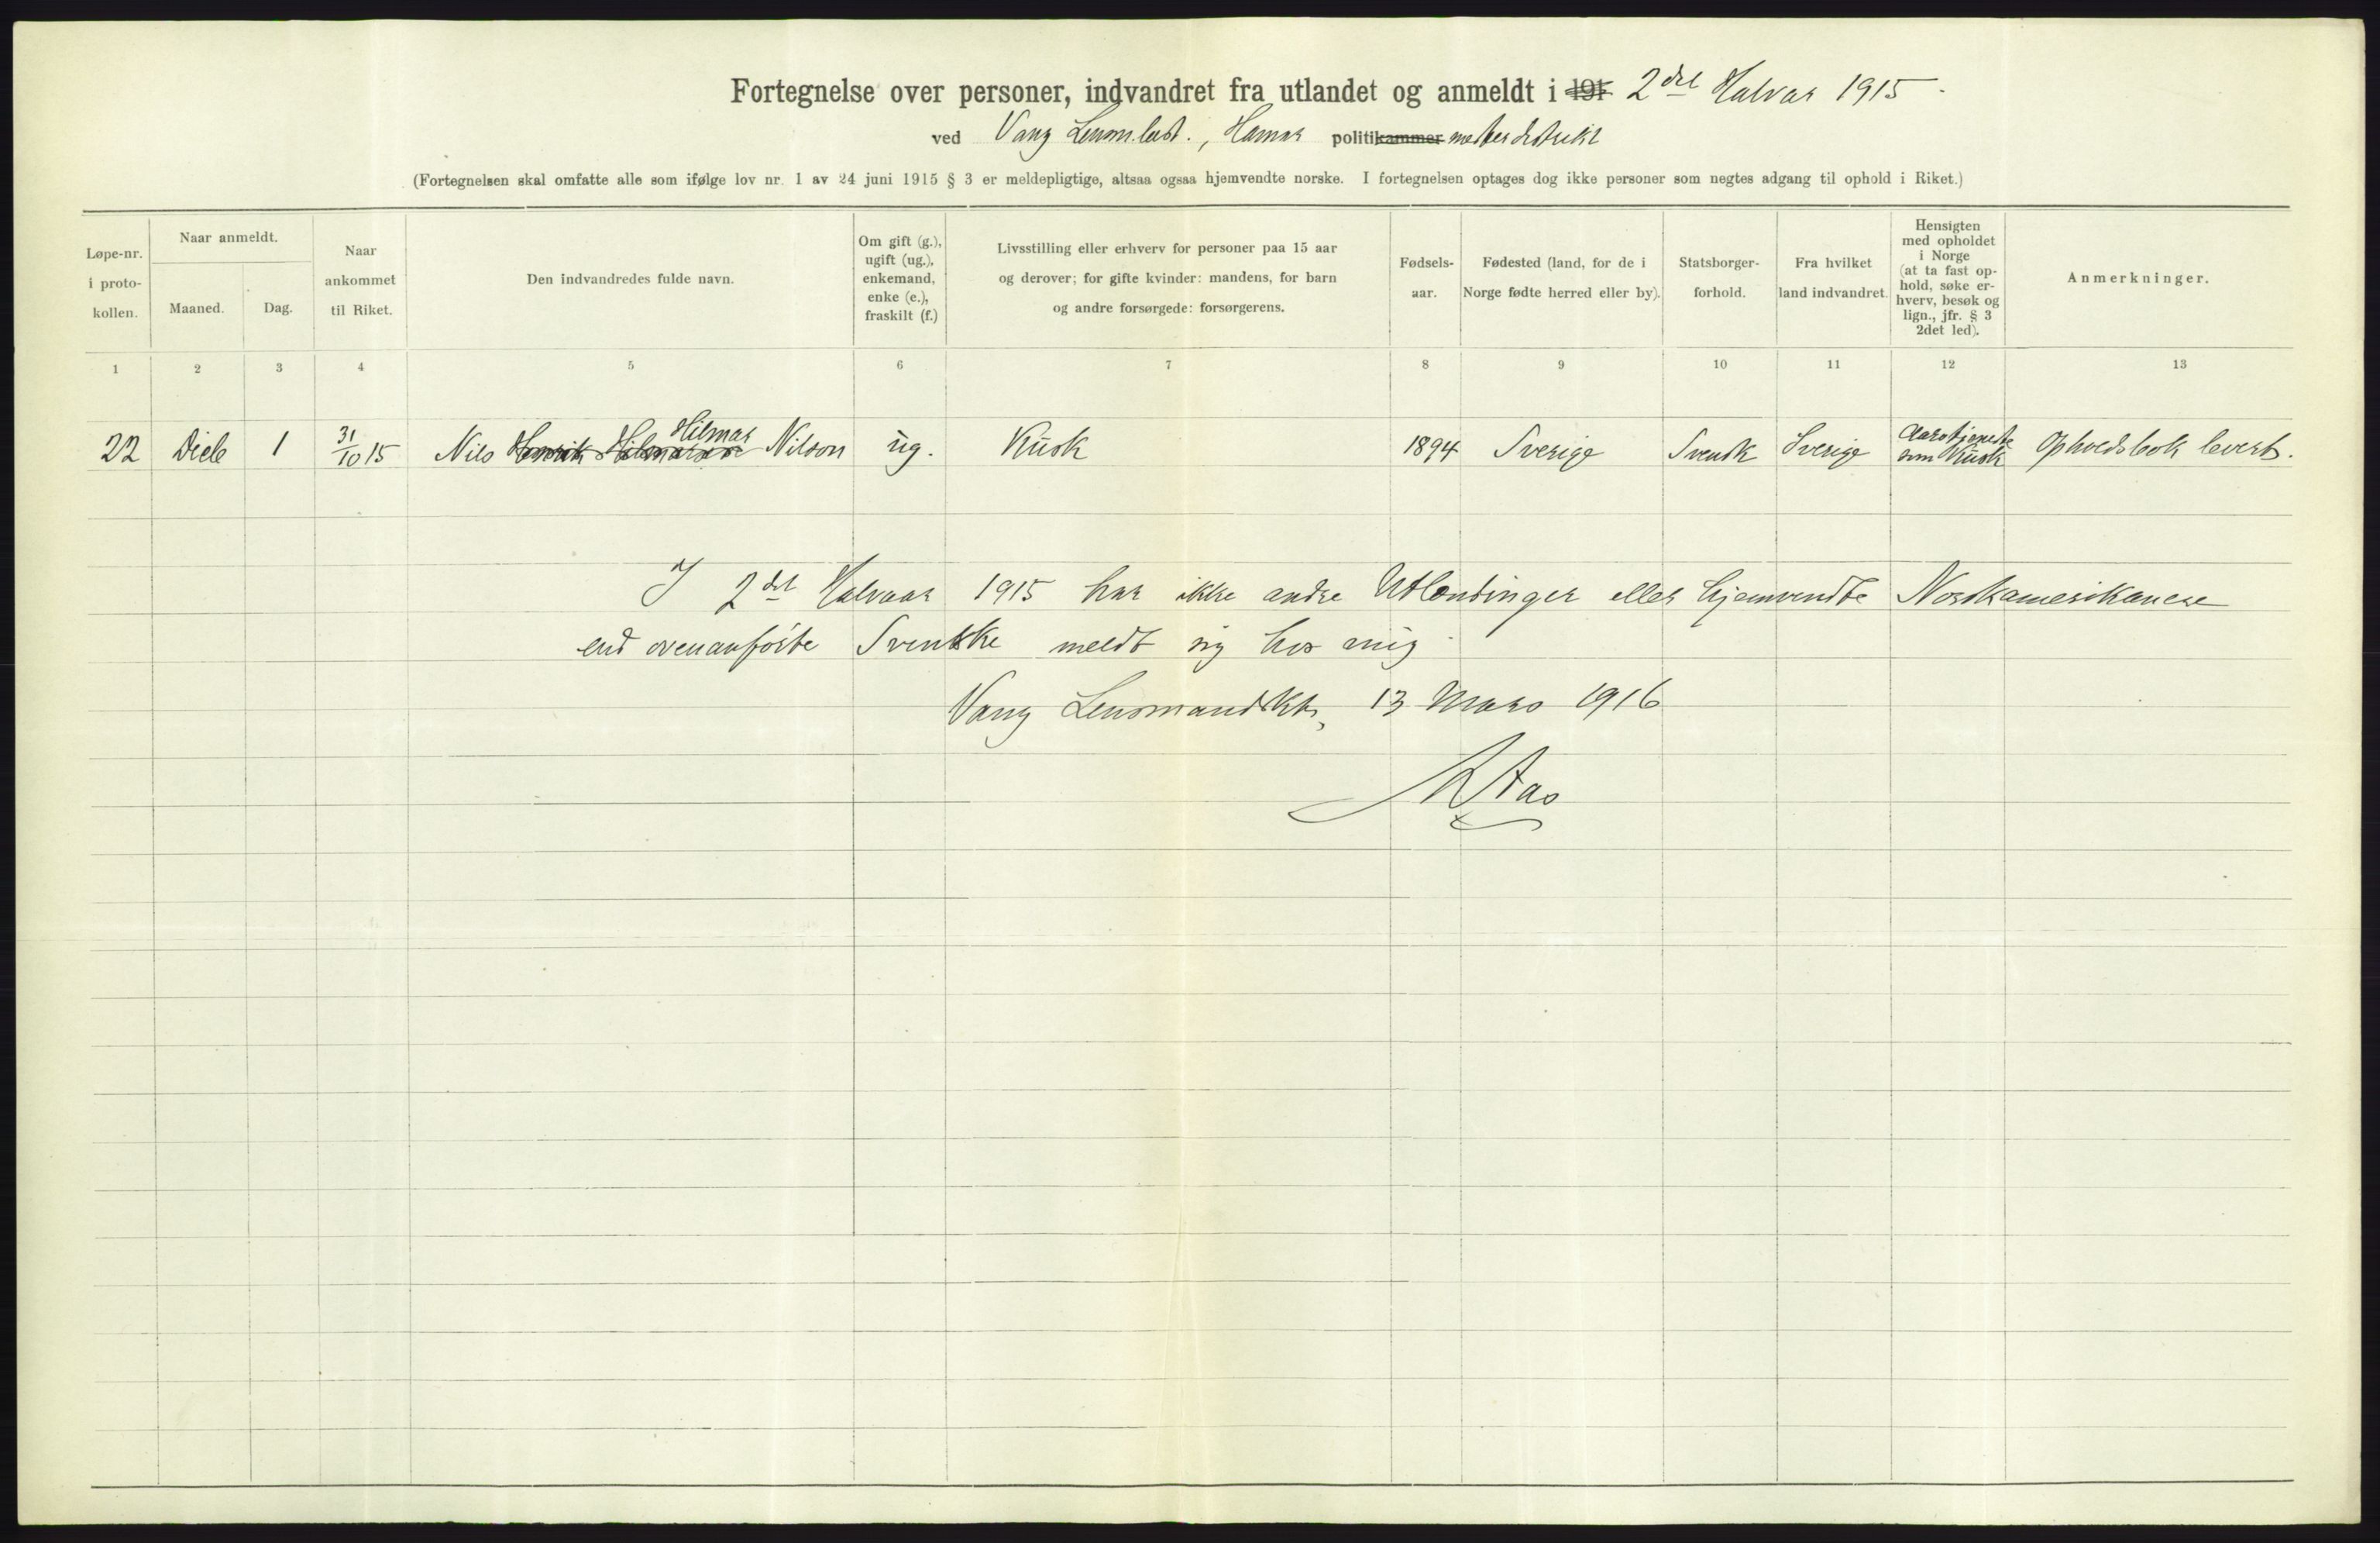 Fortegnelse over personer, indvandret fra utlandet og anmeldt i 191 2det Halvaar 1915.
ved Vang Lensm. , Hamar politikammer mesterdistrikt
(Fortegnelsen skal omfatte alle som ifølge lov nr. 1 av 24 juni 1915 § 3 er meldepligtige, altsaa ogsaa hjemvendte norske. I fortegnelsen optages dog ikke personer som negtes adgang til ophold i Riket.)
Løpe-nr.
i proto-
kollen.
Naar anmeldt.
Maaned.
Dag.
Naar
ankommet
til Riket.
Den indvandredes fulde navn.
Om gift (g.),
ugift (ug.),
enkemand,
enke (e.),
fraskilt (f.)
Livsstilling eller erhverv for personer paa 15 aar
og derover; for gifte kvinder: mandens, for barn
og andre forsørgede: forsørgerens.
Fødsels-
aar.
Fødested (land, for de i
Norge fødte herred eller by).
Statsborger-
forhold.
Fra hvilket
land indvandret.
Hensigten
med opholdet
i Norge
(at ta fast op-
hold, søke er-
hverv, besøk og
lign., jfr. § 3
2det led).
Anmerkninger.
1 2 3 4 5 6 7 8 9 10 11 12 13
Hilmar
22 Dicb 1 31/10 15 Nils Henrik Hilmarsen Nilson ug. Kusk 1894 Sverige Svensk Sverige Aarstjeneste
som Kusk Opholdsbok levert.
I 2det Halvaar 1915 har ikke andre Utlendinger eller hjemvendte Norskamerikanere
end ovenanførte Svenske meldt sig hos mig.
Vang Lensmandskt, 13 Mars 1916